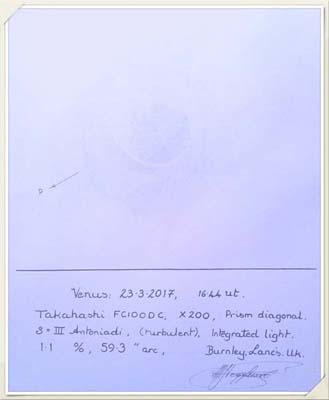 D
Venus: 23·3·2017, 16·44 ut.
Takahashi FC100DC, X200, Prism diagonal.
S = III Antoniadi, (turbulent), Integrated light.
1·1 %, 59·3 "arc, Burnley, Lancs. UK.